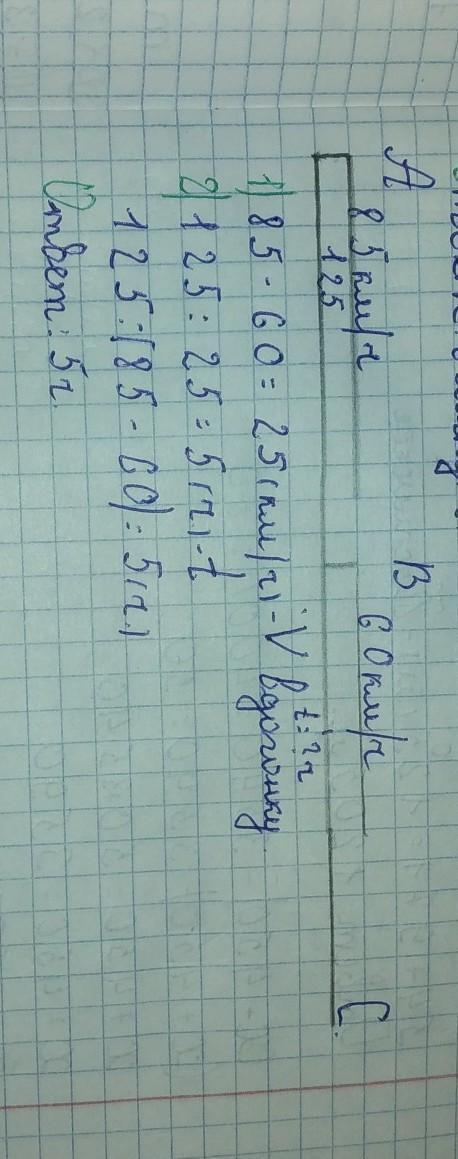 А В С.
85 км/ч 60 км/ч
125
t=?ч
1) 85 - 60 = 25 (км/ч) - V вдогонку
2) 125 : 25 = 5 (ч) - t
125 : (85 - 60) = 5 (ч)
Ответ: 5ч.